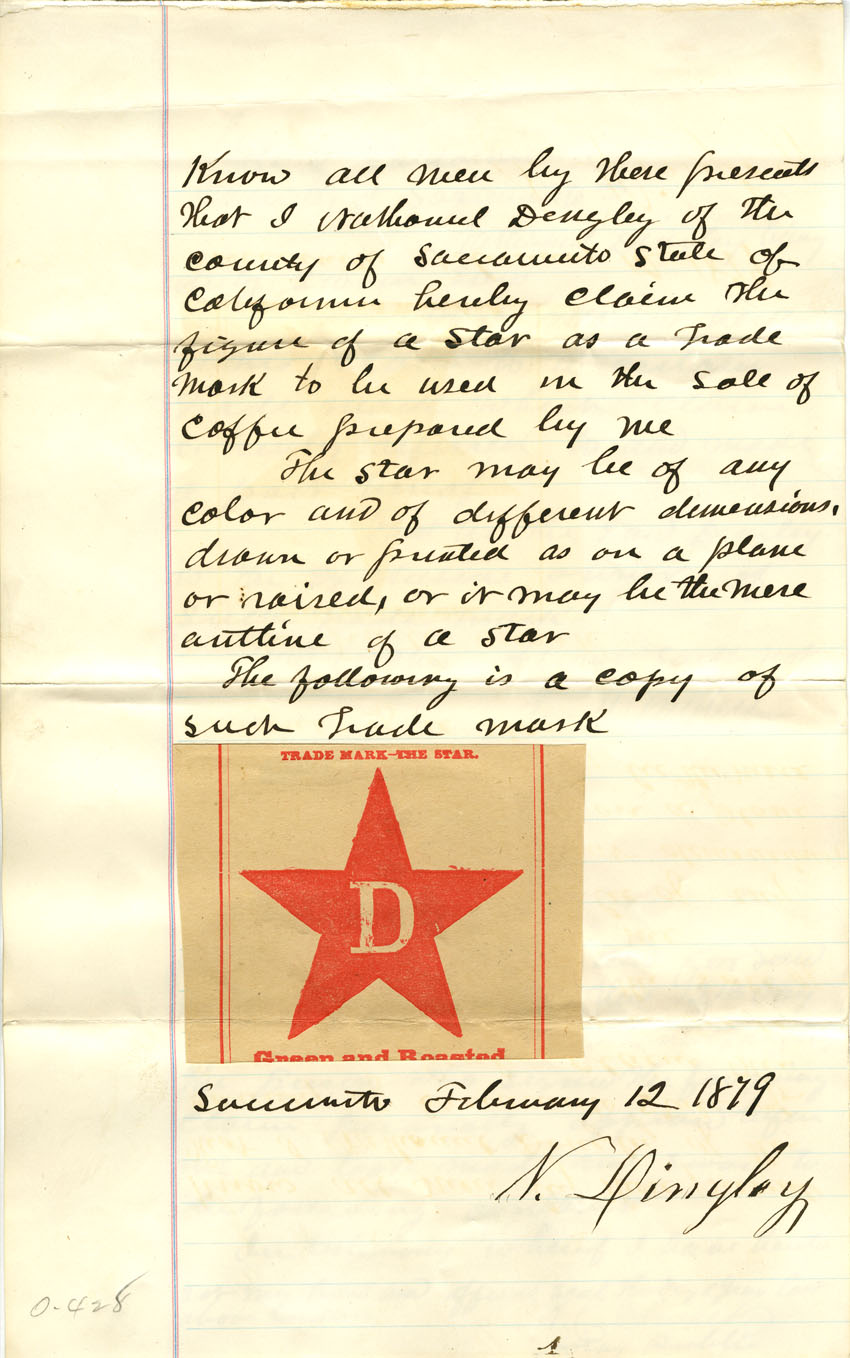 Know all men by these presents
that I Nathaniel Dingley of the
county of Sacramento State of
California hereby claim the
figure of a Star as a Trade
Mark to be used in the sale of
Coffee prepared by me
The Star may be of any
color and of different dimensions,
drawn or printed as on a plane
or raised, or it may be the mere
outline of a Star
The following is a copy of
such Trade mark
TRADE MARK-THE STAR.
D
Green and Roasted
Sacramento February 12 1879
N. Dingley
0-428
1